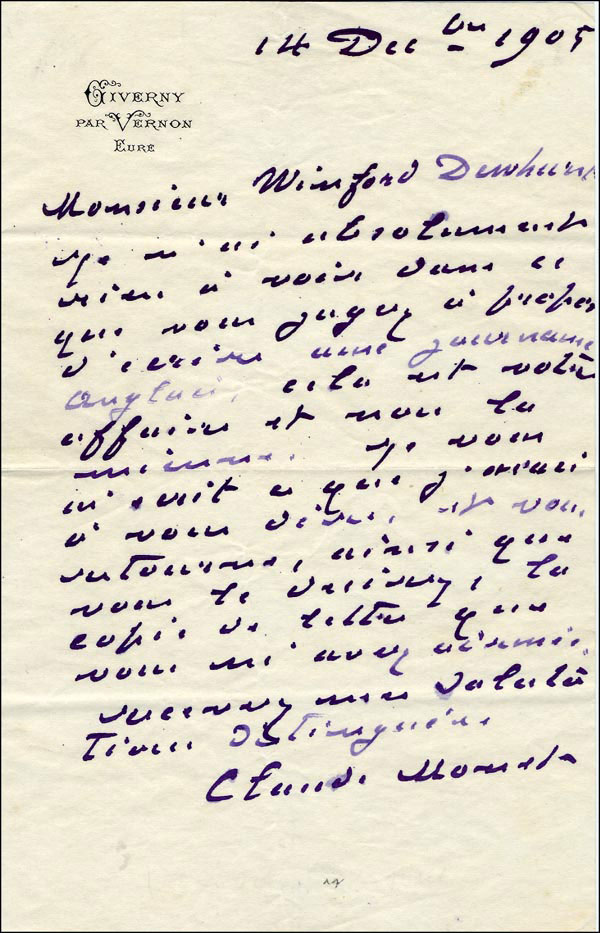 14 Decbre 1905
GIVERNY
PAR VERNON
EURE
Monsieur Winford Dewhurst
je n'ai absolument
rien à voir dans ce
que vous jugez à propos
d'écrire aux journaux
Anglais, cela est votre
affaire et non la
mienne. Je vous
ai écrit ce que j'avais
à vous dire, et vous
retourne, ainsi que
vous le désirez, la
copie de lettre que
vous m'avez
recevez mes saluta
tions distinguées
Claude Monet